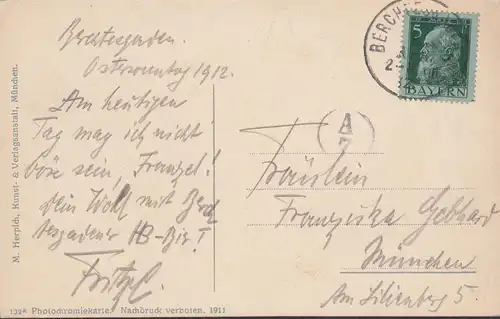 Berchtesgaden.
Ostersonntag 1912.
Am heutigen
Tag mag ich nicht
böse sein, Franzel!
Dein Wolf mit Berch
tesgadener HB-
Fritzl.
M. Herpich, Kunst- & Verlagsanstalt, München.
132a Photochromiekarte. Nachdruck verboten. 1911
BERCH
5
BAYERN
A
7
Fräulein
Franziska Gebhard
München
Am Lilienberg 5.